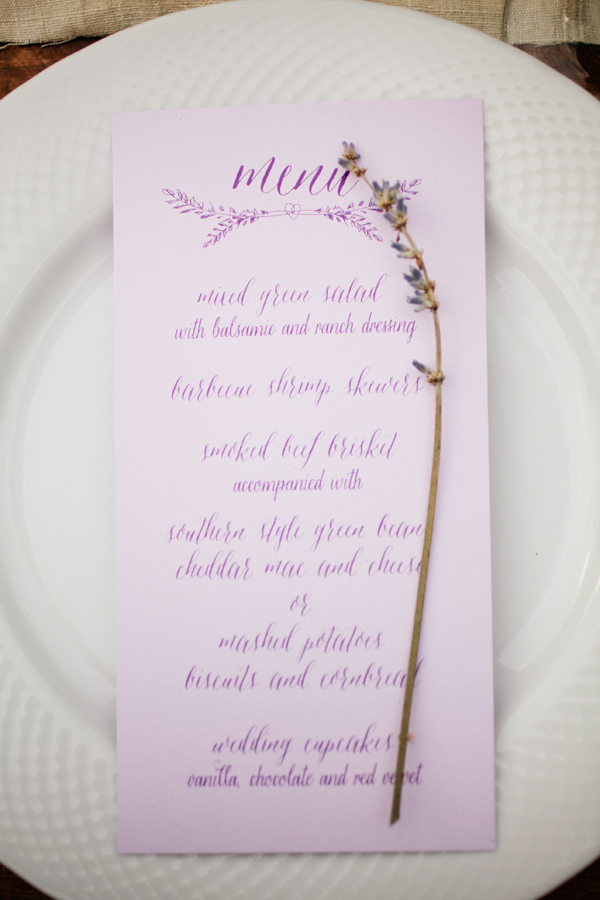 menu
mixed green salad
with balsamic and ranch dressing
barbecue shrimp skewers
smoked beef brisket
accompanied with
southern style green bean
cheddar mac and cheese
or
mashed potatoes
biscuits and cornbread
wedding cupcakes
vanilla, chocolate and red velvet